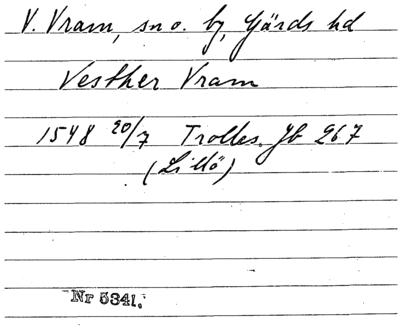 V. Vram, sn o. by, Gärds hd
Vesther Vram
1548 20/7 Trolles Jb 267
(Lillö)
Nr 5341.